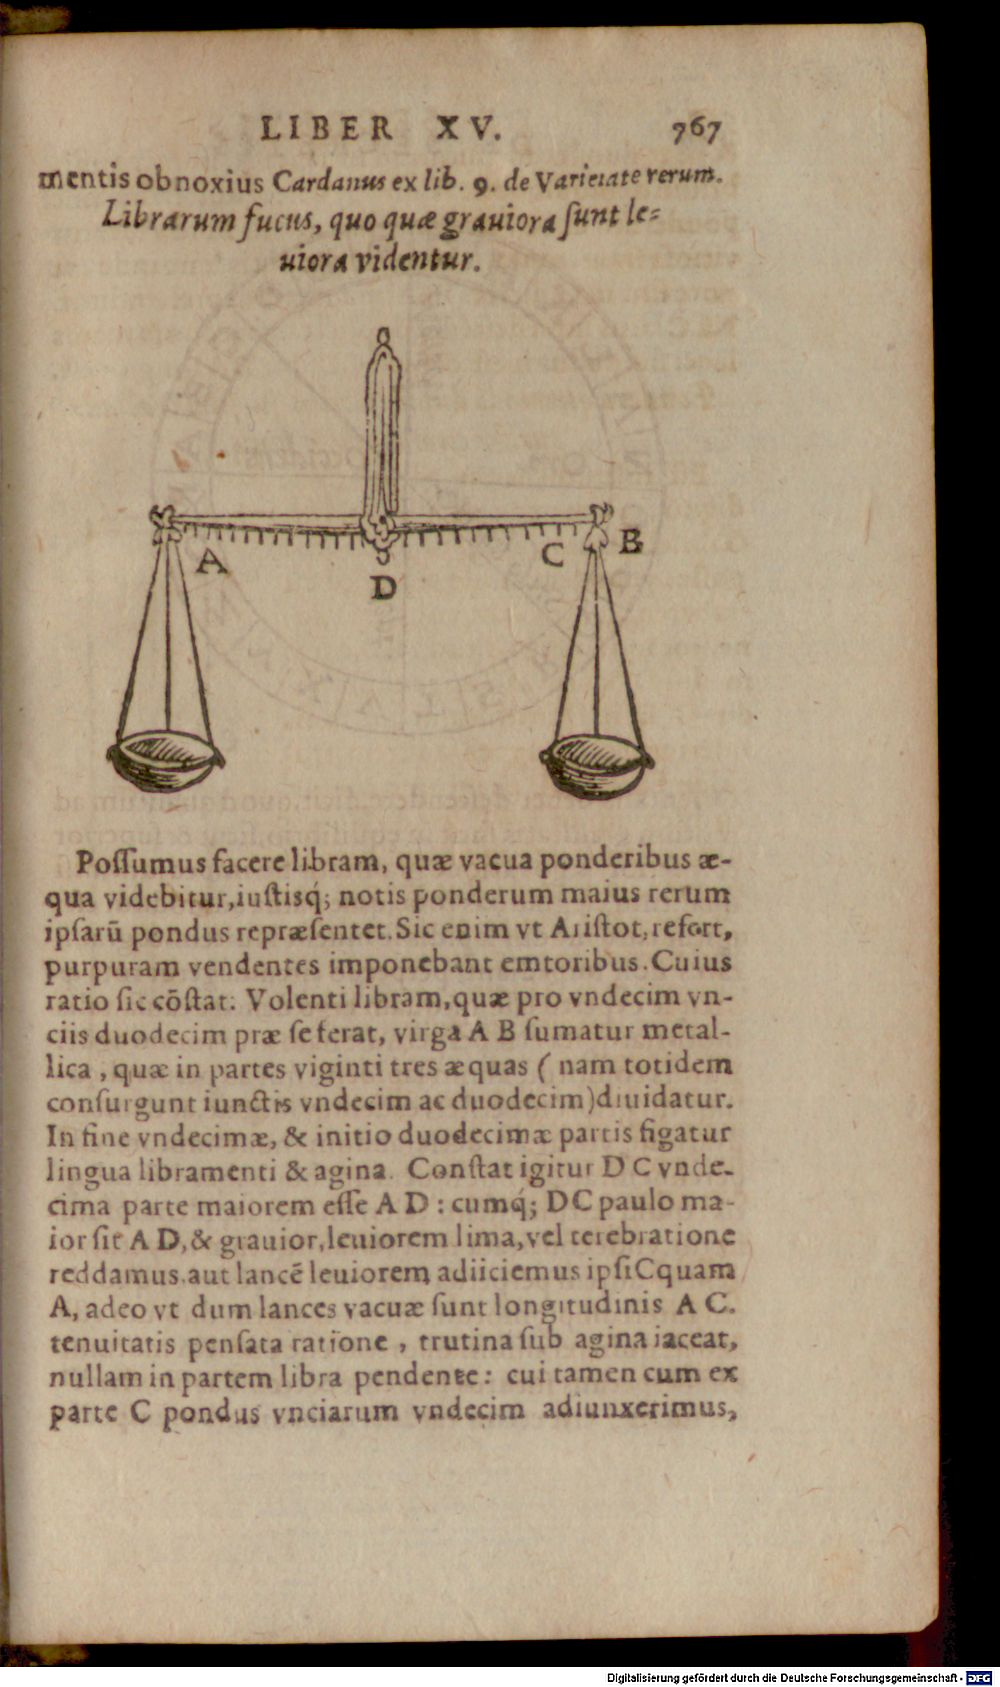 LIBER XV. 767
mentis obnoxius Cardanus ex lib. 9. de Varietate rerum.
Librarum fucus, quo quæ grauiora ſunt le-
uiora videntur.
A
D
C
B
Poſſumus facere libram, quæ vacua ponderibus æ-
qua videbitur, iuſtisq́; notis ponderum maius rerum
ipſarū pondus repræſentet. Sic enim vt Ariſtot, refert,
purpuram vendentes imponebant emtoribus. Cuius
ratio ſic cōſtat. Volenti libram, quæ pro vndecim vn-
ciis duodecim præ ſe ferat, virga A B ſumatur metal-
lica, quæ in partes viginti tres æquas ( nam totidem
conſurgunt iunctis vndecim ac duodecim) diuidatur.
In fine vndecimæ, & initio duodecimæ partis figatur
lingua libramenti & agina. Conſtat igitur D C vnde-
cima parte maiorem eſſe A D : cumq́; D C paulo ma-
ior ſit A D, & grauior, leuiorem lima, vel terebratione
reddamus, aut lancē leuiorem adiiciemus ipſi C quam
A, adeo vt dum lances vacuæ ſunt longitudinis A C.
tenuitatis penſata ratione, trutina ſub agina iaceat,
nullam in partem libra pendente: cui tamen cum ex
parte C pondus vnciarum vndecim adiunxerimus,
Digitalisierung gefördert durch die Deutsche Forschungsgemeinschaft - DFG